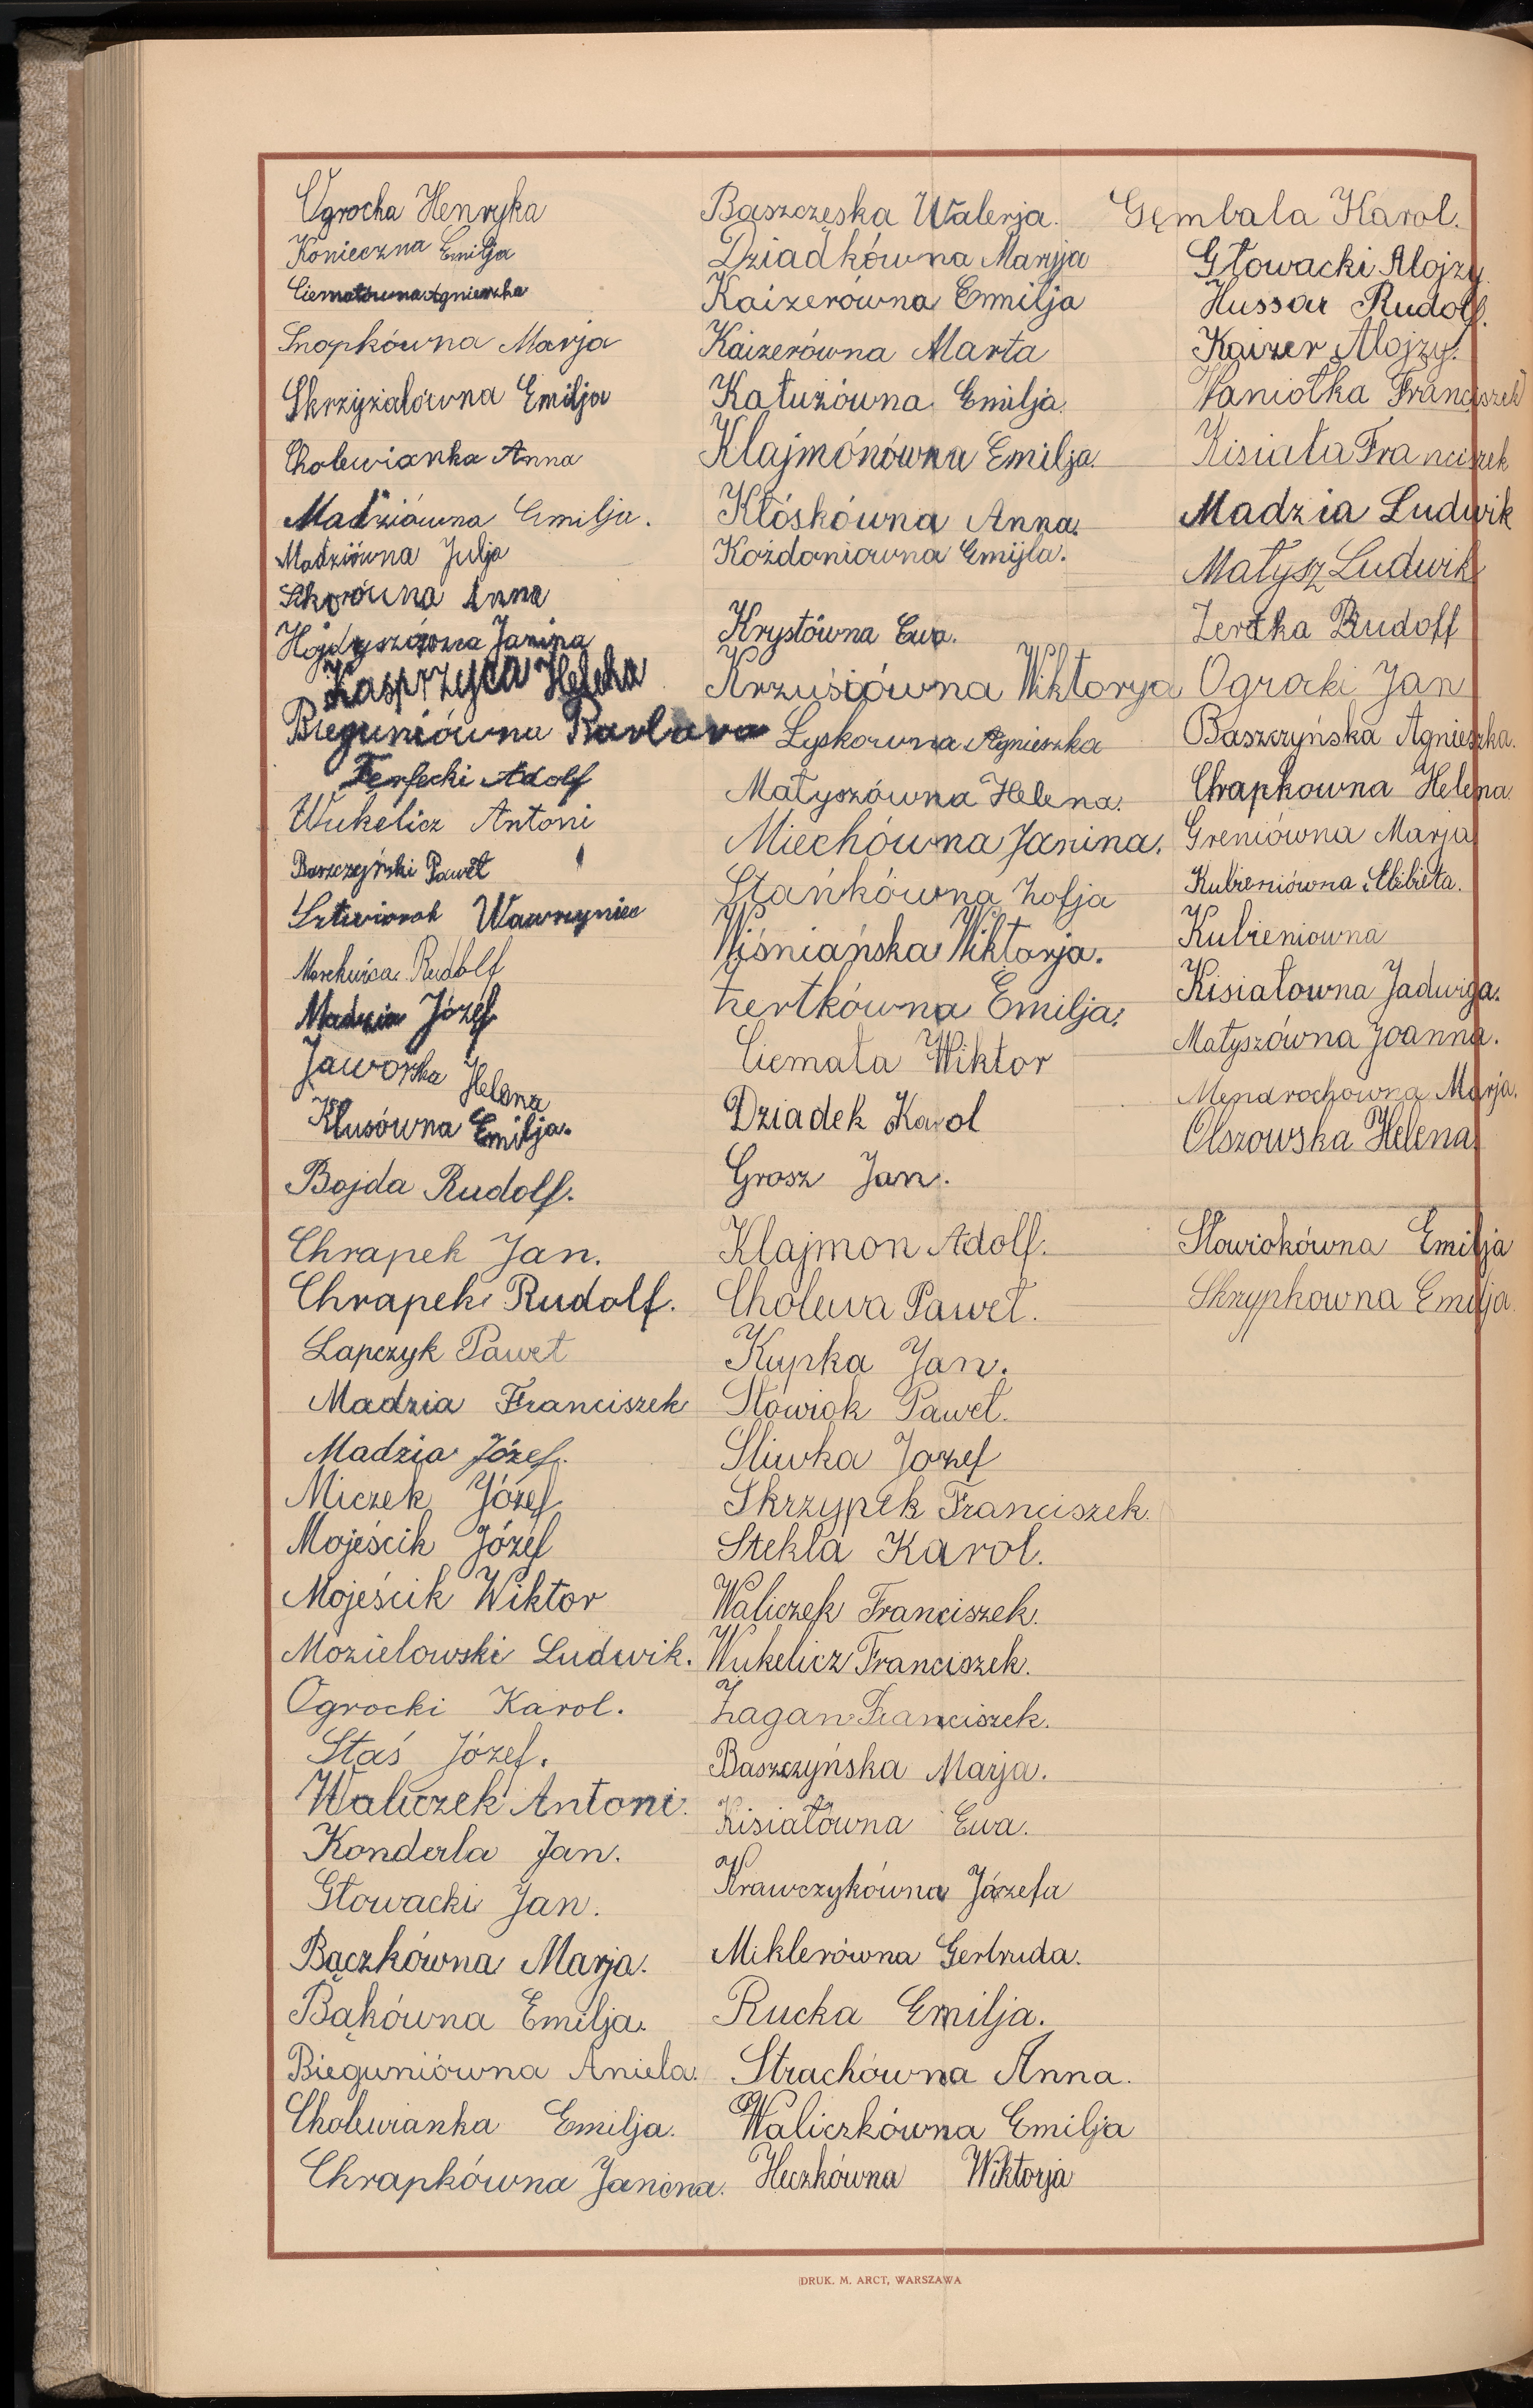 Ogrocha Henryka
Konieczna Emilja
Ciematówna Agnieszka
Snopkówna Marja
Skrzyżalówna Emilja
Cholewianka Anna
Madziówna Emilja.
Madziówna Julja
Sikorówna Anna
Hojdyszówna Janina
Kasprzyca Helena
Bieguniówna Barbara
Ferfecki Adolf
Wukelicz Antoni
Baszczyński Paweł
Wawrzyniec
Rudolf
Madzia Józef
Jaworska Helena
Klusówna Emilja.
Bojda Rudolf.
Chrapek Jan.
Chrapek Rudolf.
Lapczyk Paweł
Madzia Franciszek
Madzia Józef.
Miczek Józef
Mojeścik Józef
Mojeścik Wiktor
Mozielowski Ludwik.
Ogrocki Karol.
Staś Józef.
Waliczek Antoni.
Konderla Jan.
Głowacki Jan.
Bączkówna Marja.
Bąkówna Emilja.
Bieguniówna Aniela.
Cholewianka Emilja.
Chrapkówna Janina.
Baszczęska Walerja.
Dziadkówna Maryja
Kaizerówna Emilja
Kaizerówna Marta
Katuzówna Emilja
Klajmónówna Emilja.
Kłóskówna Anna.
Kożdoniowna Emijla.
Krystówna Ewa.
Krzuśiówna Wiktorya
Lyskowna Agnieszka
Matyszówna Helena.
Miechówna Janina.
Stańkówna Zofja
Wiśniańska Wiktorja.
Żertkówna Emilja.
Ciemała Wiktor
Dziadek Karol
Grosz Jan.
Klajmon Adolf.
Cholewa Paweł.
Kupka Jan.
Słowiok Paweł.
Śliwka Jozef
Skrzypek Franciszek.
Stekla Karol.
Waliczek Franciszek.
Wukelicz Franciszek.
Żagan Franciszek.
Baszczyńska Marja.
Kisiałówna Ewa.
Krawczykówna Józefa
Miklerówna Gertruda.
Rucka Emilja.
Strachówna Anna.
Waliczkówna Emilja
Heczkówna Wiktorja
Gembala Karol.
Głowacki Alojzy
Hussar Rudolf.
Kaizer Alojzy.
Kaniotka Franciszek
Kisiała Franciszek
Madzia Ludwik
Matysz Ludwik
Żertka Rudolf
Ogrocki Jan
Baszczyńska Agnieszka.
Chrapkowna Helena
Greniówna Marja
Kubieniówna Elżbieta.
Kubieniowna
Kisiałowna Jadwiga.
Matyszówna Joanna.
Mendrochowna Marja.
Olszowska Helena
Słowiokówna Emilja
Skrzypkowna Emilja.
DRUK. M. ARCT, WARSZAWA